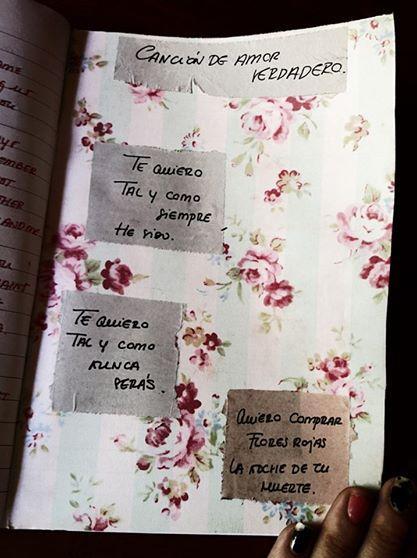 CANCIÓN DE AMOR
VERDADERO.
TE QUIERO
TAL Y COMO
SIEMPRE
HE SIDO.
TE QUIERO
TAL Y COMO
NUNCA
SERÁS.
QUIERO COMPRAR
FLORES ROJAS
LA NOCHE DE TU
MUERTE.